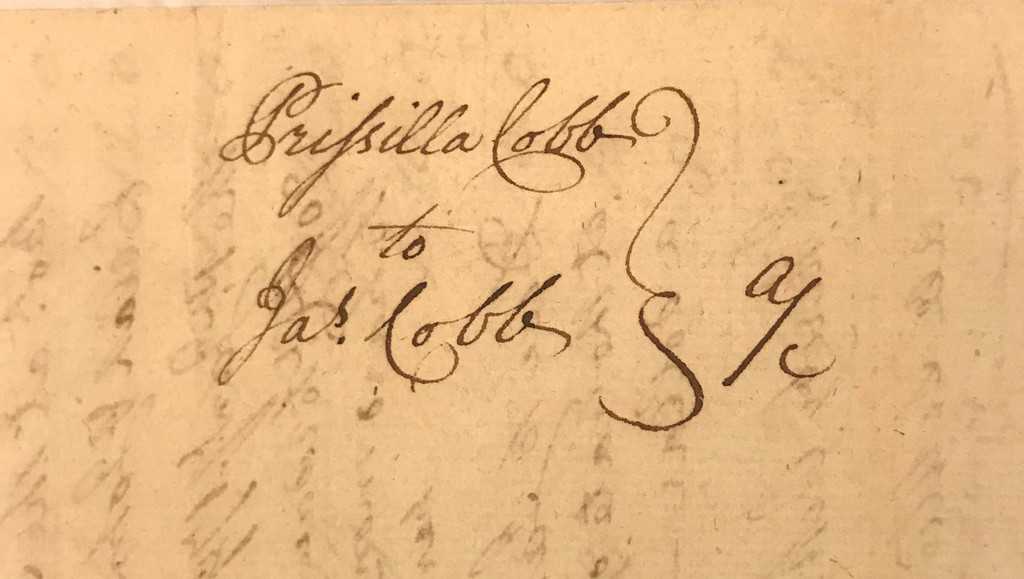 Prißilla Cobb
to
Jas. Cobb } a/c